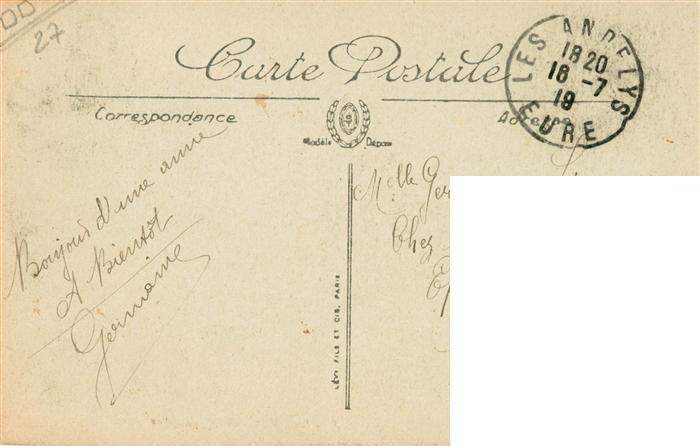 27
Carte Postale
LES ANDELYS
18 20
16 -7
19
EURE
Correspondance
Adresse
Modèle Déposé
Bonjour d'une amie
A Bientôt
Germaine
LÉVY FILS ET CIE, PARIS
Melle Ger
Chez